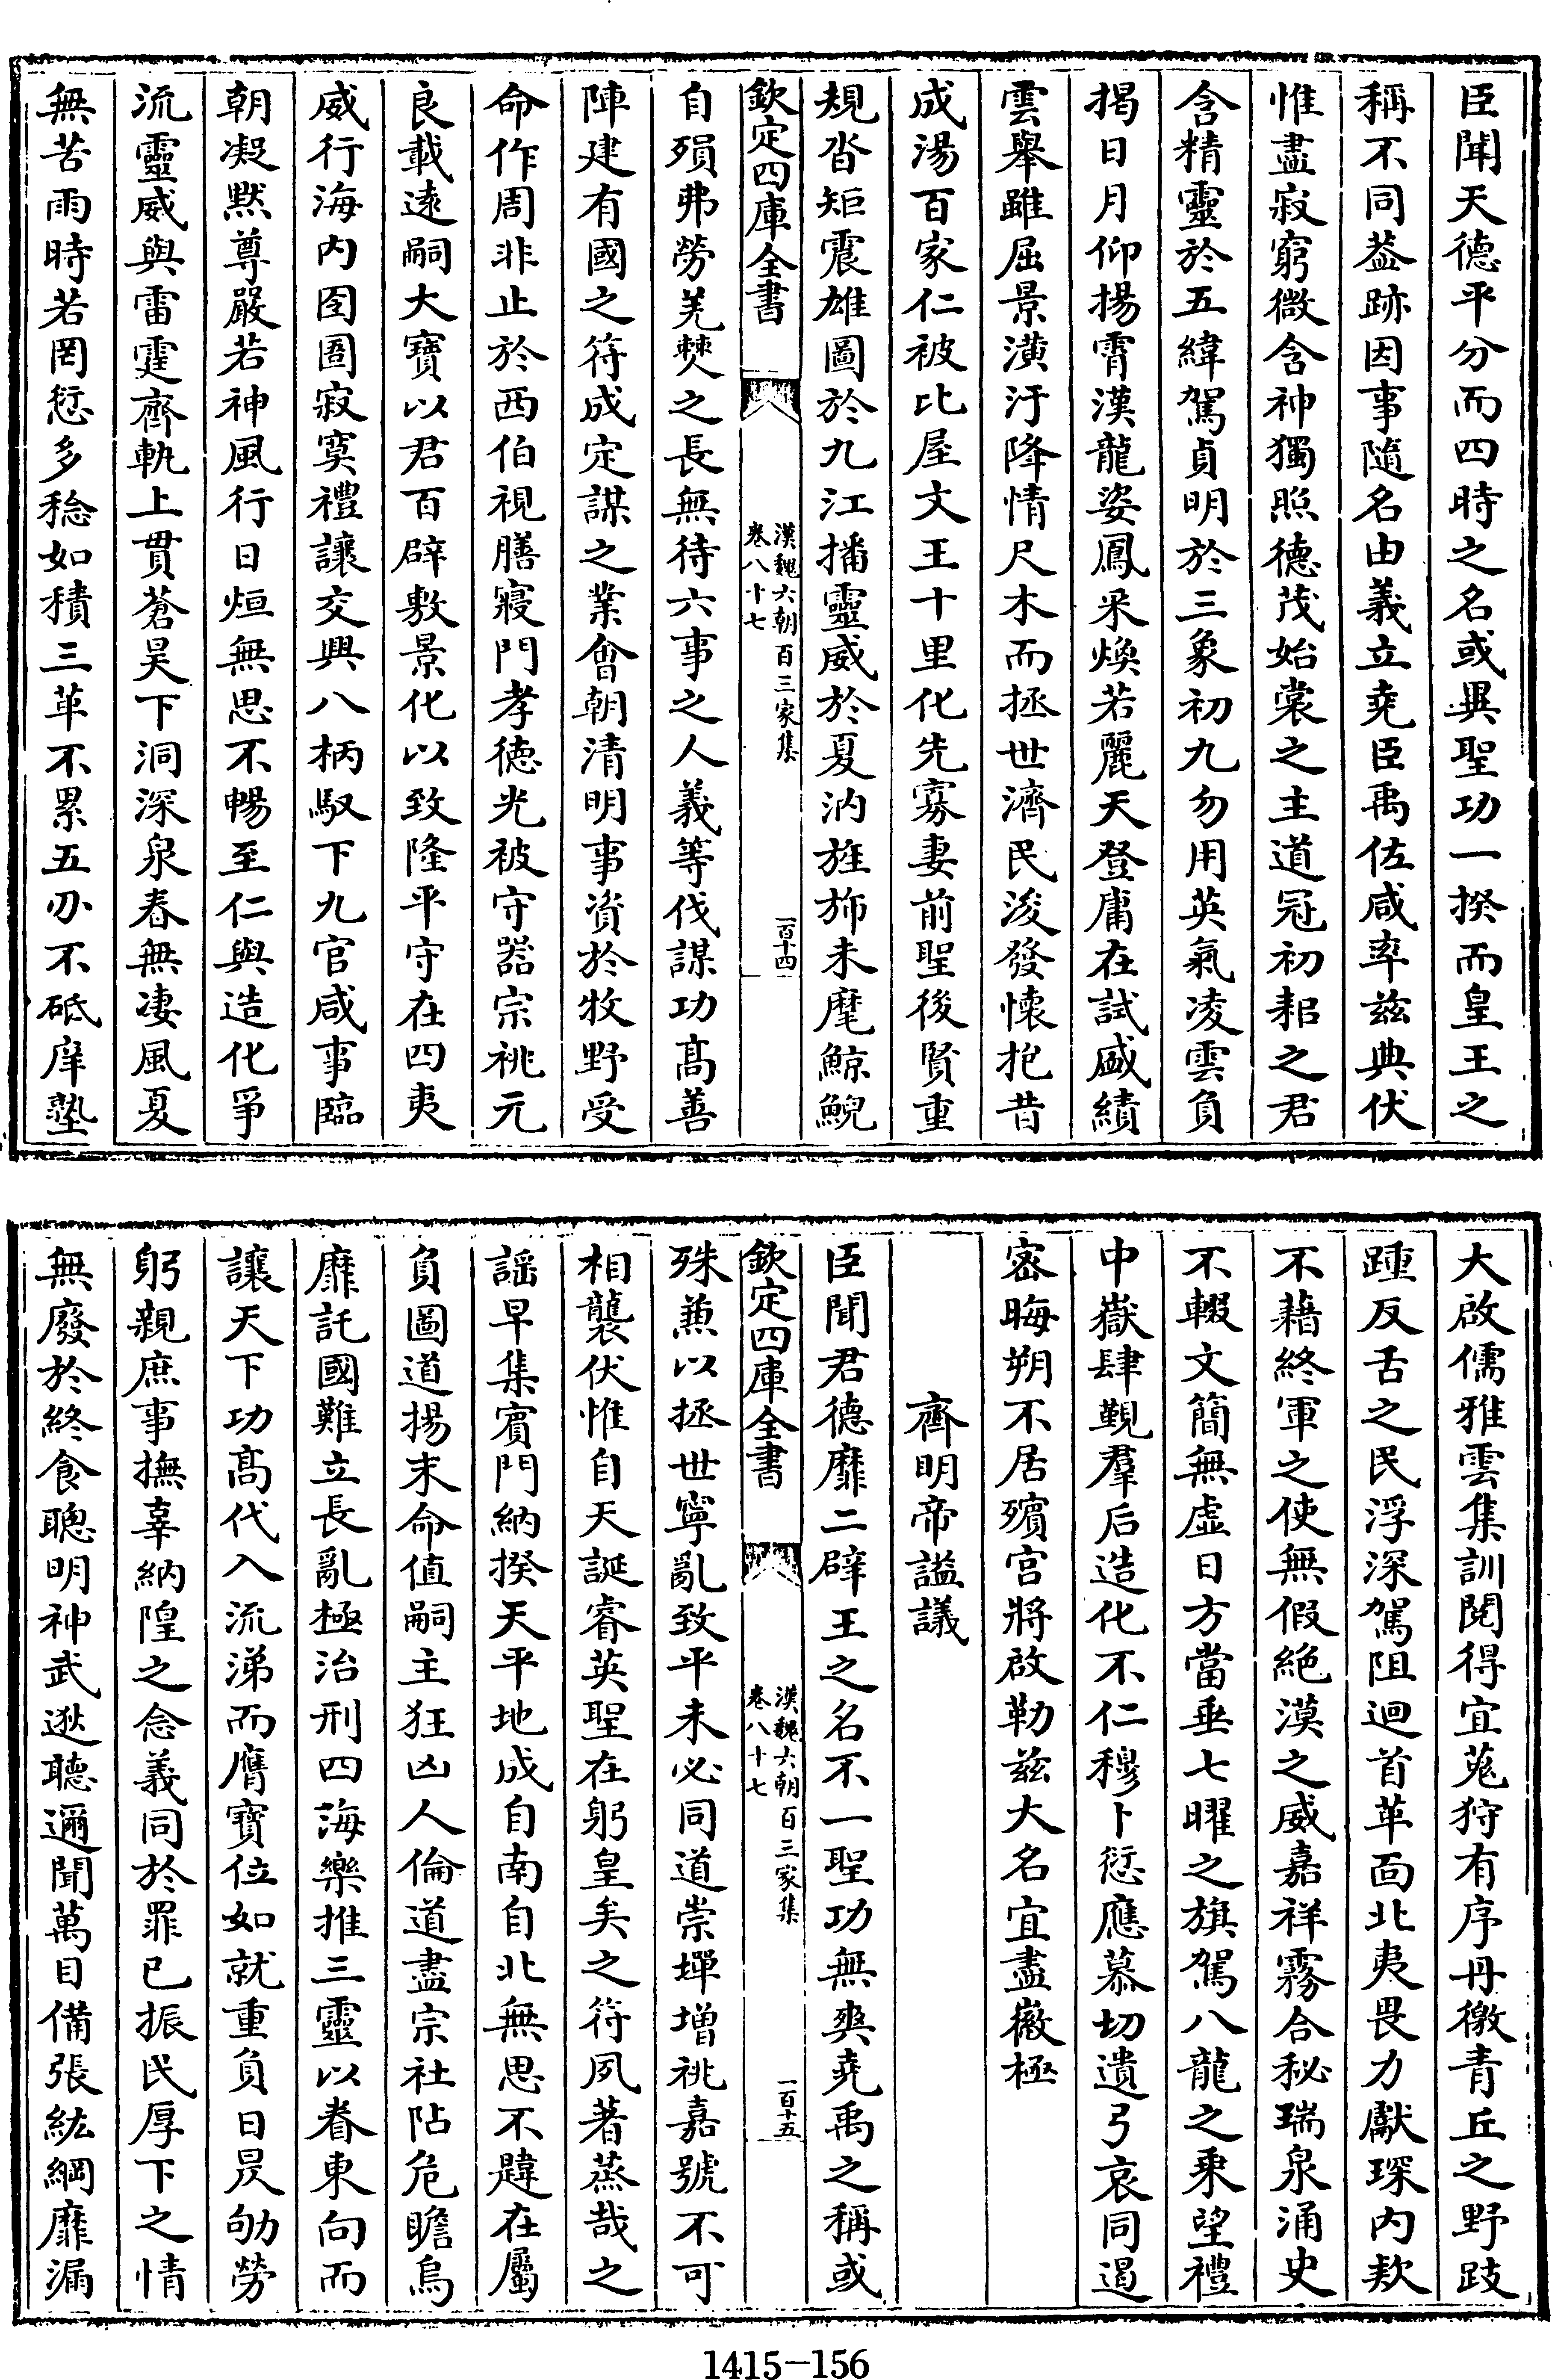 臣聞天德平分而四時之名或異聖功一揆而皇王之
稱不同葢跡因事隨名由義立堯臣禹佐咸率兹典伏
惟盡寂窮微含神獨照德茂始裳之主道冠初耜之君
含精靈於五緯駕貞明於三象初九勿用英氣凌雲負
揭日月仰揚霄漢龍姿鳳采煥若麗天登庸在試盛績
雲舉雖屈景潢汙降情尺木而拯世濟民浚發懷抱昔
成湯百家仁被比屋文王十里化先寡妻前聖後賢重
規沓矩震雄圖於九江播靈威於夏汭旌斾未麾鯨鯢
欽定四庫全書
漢魏六朝百三家集
卷八十七
一百十四
自殞弗勞羌僰之長無待六事之人義等伐謀功髙善
陣建有國之符成定謀之業會朝清明事資於牧野受
命作周非止於西伯視膳寢門孝德光被守器宗祧元
良載逺嗣大寶以君百辟敷景化以致隆平守在四夷
威行海内囹圄寂寞禮讓交興八柄馭下九官咸事臨
朝凝默尊嚴若神風行日烜無思不暢至仁與造化爭
流靈威與雷霆齊軌上貫蒼昊下洞深泉春無凄風夏
無苦雨時若罔愆多稔如積三革不累五刃不砥庠塾
大啟儒雅雲集訓閲得宜蒐狩有序丹徼青丘之野跂
踵反舌之民浮深駕阻迴首革面北夷畏力獻琛内欵
不藉終軍之使無假絶漠之威嘉祥霧合秘瑞泉涌史
不輟文簡無虚日方當垂七曜之旗駕八龍之乗望禮
中嶽肆覲羣后造化不仁穆卜愆應慕切遺弓哀同遏
宻晦朔不居殯宫將啟勒兹大名宜盡徽極
齊明帝謚議
臣聞君德靡二辟王之名不一聖功無爽堯禹之稱或
欽定四庫全書
漢魏六朝百三家集
卷八十七
一百十五
殊兼以拯世寧亂致平未必同道崇墠增祧嘉號不可
相襲伏惟自天誕睿英聖在躬皇矣之符夙著蒸哉之
謡早集賓門納揆天平地成自南自北無思不韙在屬
負圖道揚末命值嗣主狂凶人倫道盡宗社阽危瞻烏
靡託國難立長亂極治刑四海樂推三靈以眷東向而
讓天下功髙代入流涕而膺寶位如就重負日昃劬勞
躬親庶事撫辜納隍之念義同於罪已振民厚下之情
無廢於終食聰明神武逖聽邇聞萬目備張紘綱靡漏
1415—156